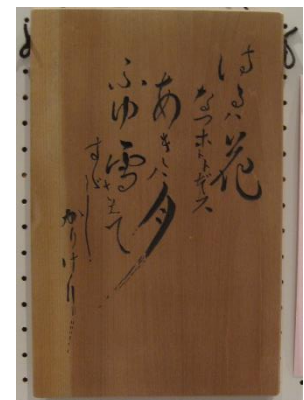 はるは花
なつホトトギス
あきは月
ふゆ雪さえて
すずし
かりけり